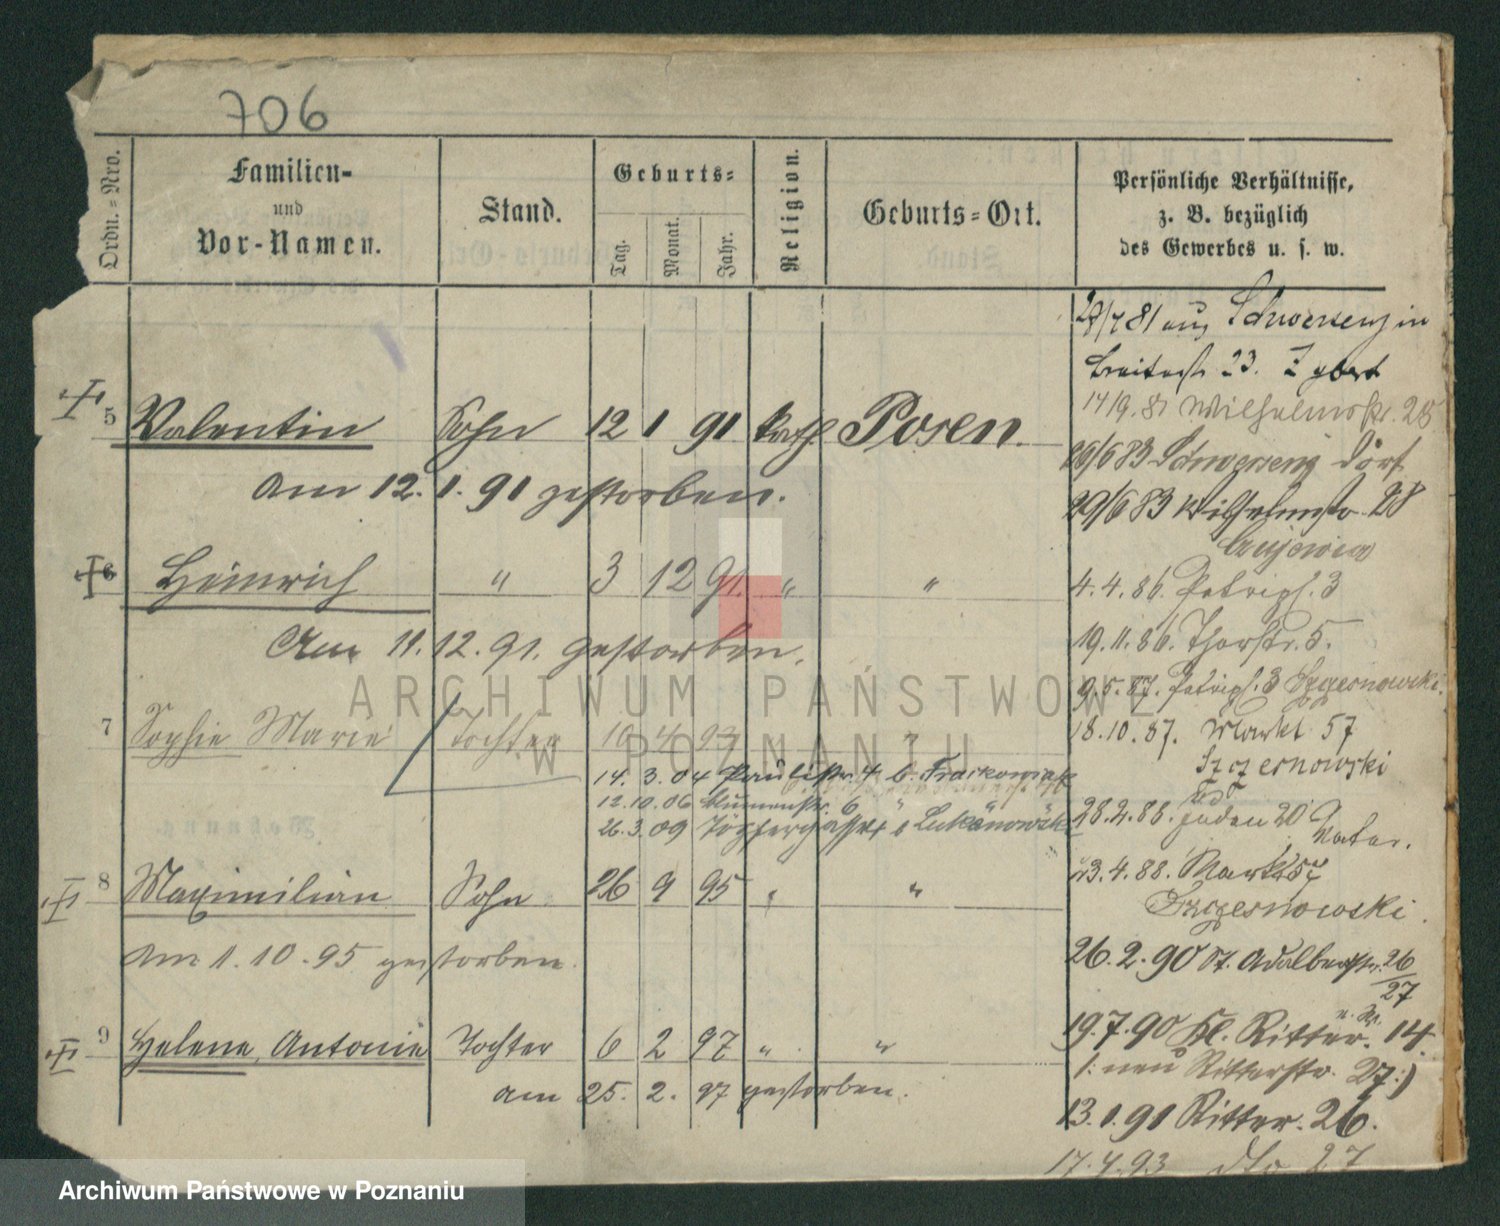 706
Ordn.-Nro.
Familien-
und
Vor-Namen.
Stand.
Geburts-
Tag.
Monat.
Jahr.
Religion.
Geburts-Ort.
Persönliche Verhältnisse,
z. B. bezüglich
des Gewerbes u. s. w.
5 Valentin Sohn 12 1 91 kath. Posen.
am 12. 1. 91 gestorben.
6 Heinrich " 3 12 91. " "
Am 11. 12. 91. gestorben.
7 Sophie Marie Tochter 10 4 93 "
14. 3. 04 Paulistr. 4 b. Frackowiak
12. 10. 06 Blumenstr. 6 "
26. 3. 09 Töpfergasse
8 Maximilian Sohn 26 9 95 " "
am 1. 10. 95 gestorben.
9 Helene, Antonie Tochter 6 2 97 " "
am 25. 2. 97 gestorben.
29/7 81 aus Schwersenz in
Breitestr 23.
14/9. 81 Wilhelmstr. 28
29/6 83 Schwersenz Dorf
29/6 83 Wilhelmstr. 28
4. 4. 86. Petripl. 3
19. 11. 86. Thorstr. 5.
9. 5. 87. Petripl. 3 Szczesnowski.
18. 10. 87. Markt 57
Szczesnowski
28. 2. 88. Juden 20
Vater.
23. 4. 88. Markt 57
Szczesnowski.
26. 2. 90 St. Adalbertstr. 26/27
19. 7. 90 Kl. Ritter. 14
/: neu Ritterstr. 27 :/
13. 1. 91 Ritter. 26.
17. 4. 93 dto 27
ARCHIWUM PAŃSTWOWE
W POZNANIU
Archiwum Państwowe w Poznaniu